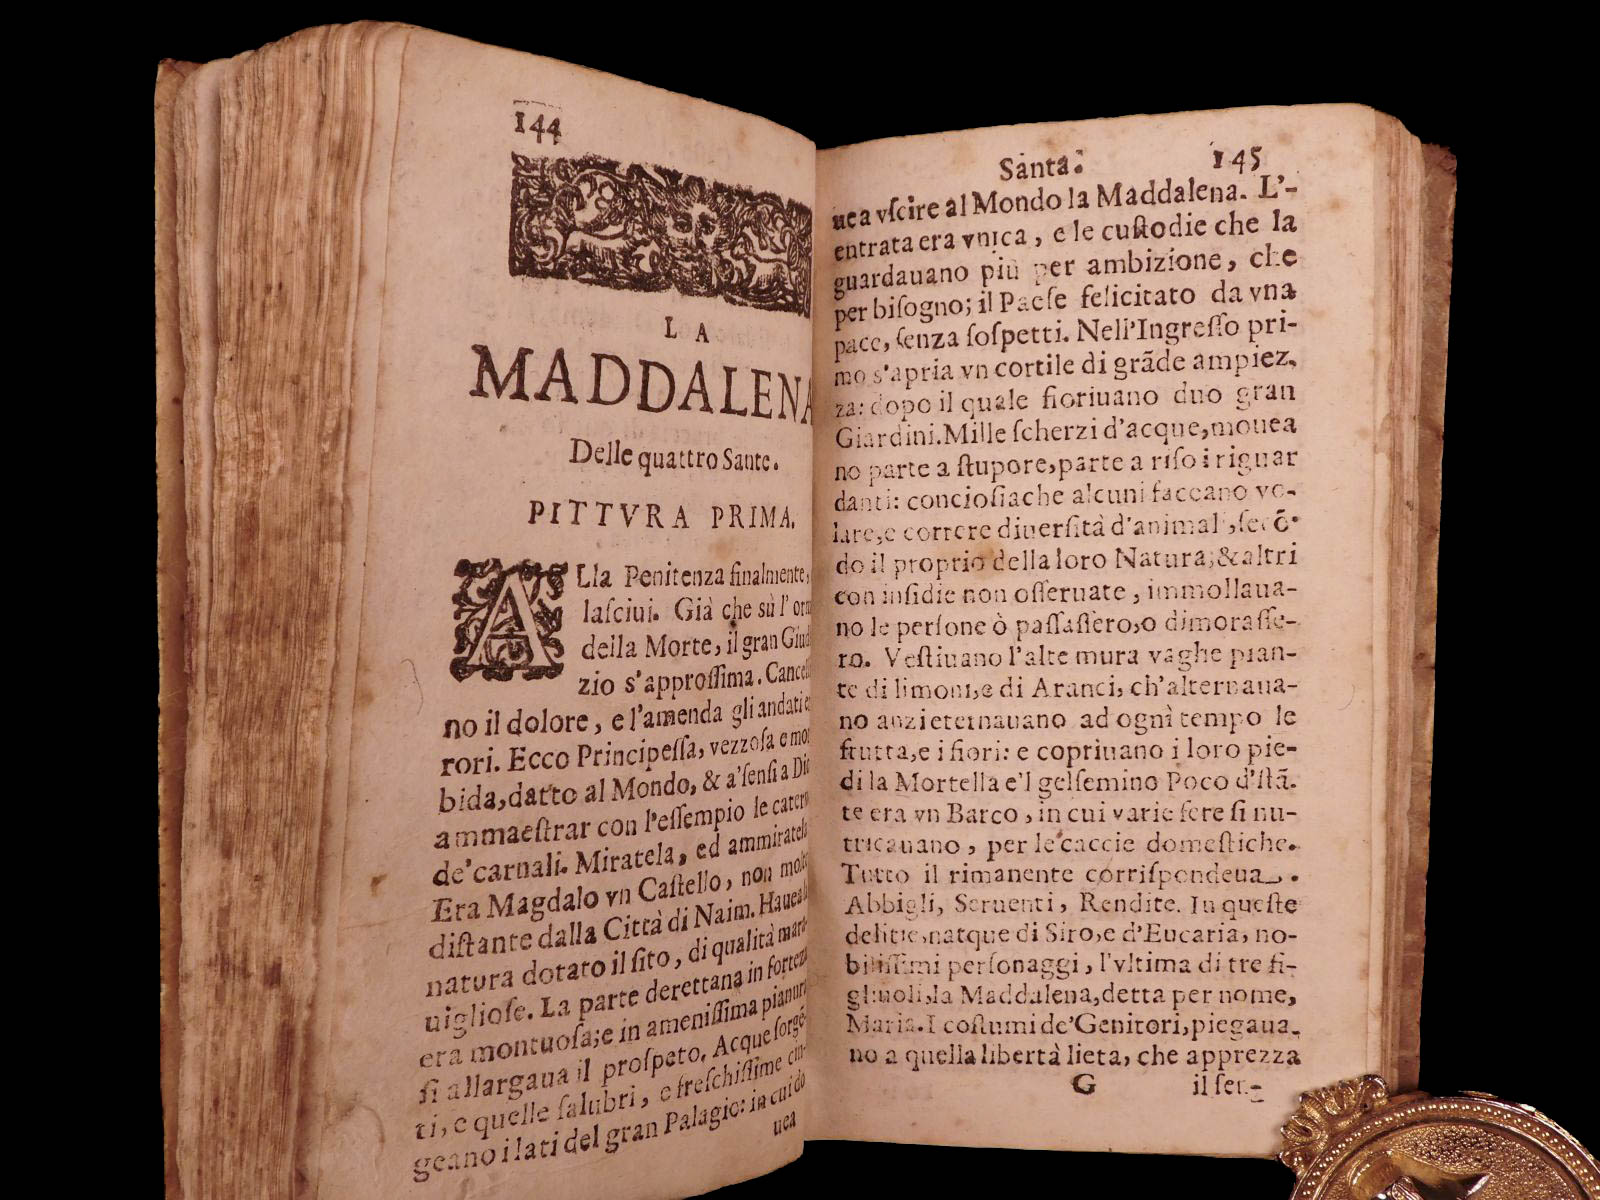 144
LA
MADDALENA
Delle quattro Sante.
PITTVRA PRIMA.
ALla Penitenza finalmente,
lasciui. Già che sù l'
della Morte, il gran
zio s'approssima.
no il dolore, e l'amenda gli andati
rori. Ecco Principessa, vezzosa e
bida, datto al Mondo, & a'sensi a
ammaestrar con l'essempio le
de'carnali. Miratela, ed
Era Magdalo vn Castello, non
distante dalla Città di Naim.
natura dotato il sito, di qualità
uigliose. La parte derettana in
era montuosa; e in amenissima
si allargaua il prospeto. Acque
ti, e quelle salubri, e freschissime
geano i lati del gran Palagio: in cui do
uea
Santa. 145
uea vscire al Mondo la Maddalena. L'-
entrata era vnica, e le custodie che la
guardauano più per ambizione, che
per bisogno; il Paese felicitato da vna
pace, senza sospetti. Nell'Ingresso pri-
mo s'apria vn cortile di grãde ampiez.
za: dopo il quale fioriuano duo gran
Giardini. Mille scherzi d'acque, mouea
no parte a stupore, parte a riso i riguar
danti: conciosiache alcuni faceano vo-
lare, e correre diuersità d'animal', secõ-
do il proprio della loro Natura; & altri
con insidie non osseruate, immollaua-
no le persone ò passassero, o dimorasse-
ro. Vestiuano l'alte mura vaghe pian-
te di limoni, e di Aranci, ch'alternaua-
no anzi eternauano ad ogni tempo le
frutta, e i fiori: e copriuano i loro pie-
di la Mortella e'l gelsemino Poco d'istã.
te era vn Barco, in cui varie fere si nu-
tricauano, per le caccie domestiche.
Tutto il rimanente corrispondeua.
Abbigli, Seruenti, Rendite. In queste
delitie, natque di Siro, e d'Eucaria, no-
bilissimi personaggi, l'vltima di tre fi-
gliuoli, la Maddalena, detta per nome,
Maria. I costumi de'Genitori, piegaua.
no a quella libertà lieta, che apprezza
G il ser-